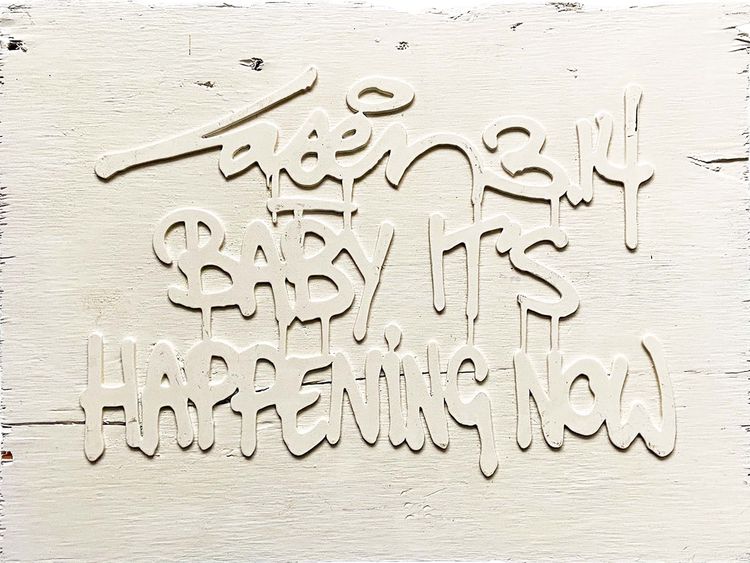 Laser 3.14
BABY IT'S
HAPPENING NOW